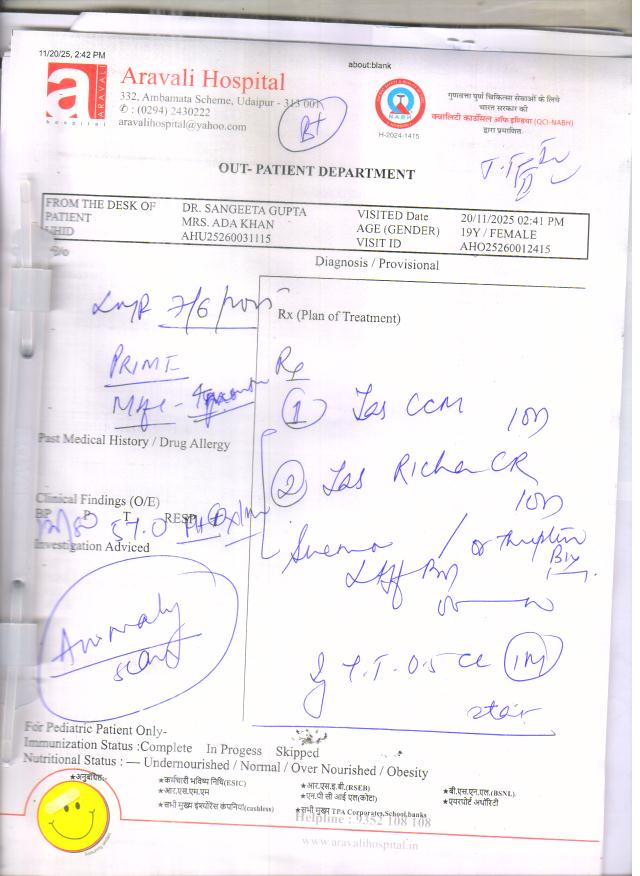 11/20/25, 2:42 PM
about:blank
a
ARAVALI
hospital
Aravali Hospital
332, Ambamata Scheme, Udaipur - 313 001
✆ : (0294) 2430222
aravalihospital@yahoo.com
B+
NABH
H-2024-1415
गुणवत्ता पूर्ण चिकित्सा सेवाओं के लिये
भारत सरकार की
क्वालिटी काउंसिल ऑफ इण्डिया (QCI-NABH)
द्वारा प्रमाणित
OUT- PATIENT DEPARTMENT
FROM THE DESK OF DR. SANGEETA GUPTA VISITED Date 20/11/2025 02:41 PM
PATIENT MRS. ADA KHAN AGE (GENDER) 19Y / FEMALE
UHID AHU25260031115 VISIT ID AHO25260012415
Diagnosis / Provisional
LMP 7/6
Rx (Plan of Treatment)
PRIME
Rx
① Tab CCM 10D
Past Medical History / Drug Allergy
② Tab Richer CR
10D
Clinical Findings (O/E)
BP P T RESP
57.0
Investigation Adviced
or Threptin
Anomaly
scan
0.5 cc IM
stat
For Pediatric Patient Only-
Immunization Status :Complete In Progess Skipped
Nutritional Status : — Undernourished / Normal / Over Nourished / Obesity
★अनुबंधित:-
★कर्मचारी भविष्य निधि(ESIC)
★आर.एस.एम.एम
★सभी मुख्य इंश्योरेंस कंपनियां(cashless)
★आर.एस.इ.बी.(RSEB)
★एन.पी सी आई एल(कोटा)
★सभी मुख्य TPA Corporates,School,banks
★बी.एस.एन.एल.(BSNL)
★एयरपोर्ट अथॉरिटी
Helpline : 9352 108 108
www.aravalihospital.in